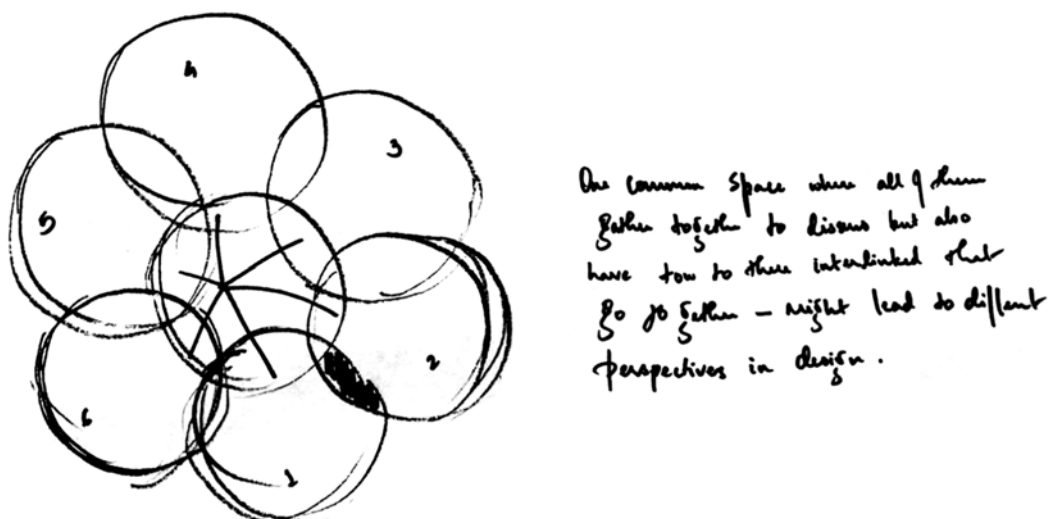 4
3
5
2
6
1
One common space where all of them
gather together to discuss but also
have two to three interlinked that
go together – might lead to different
perspectives in design.